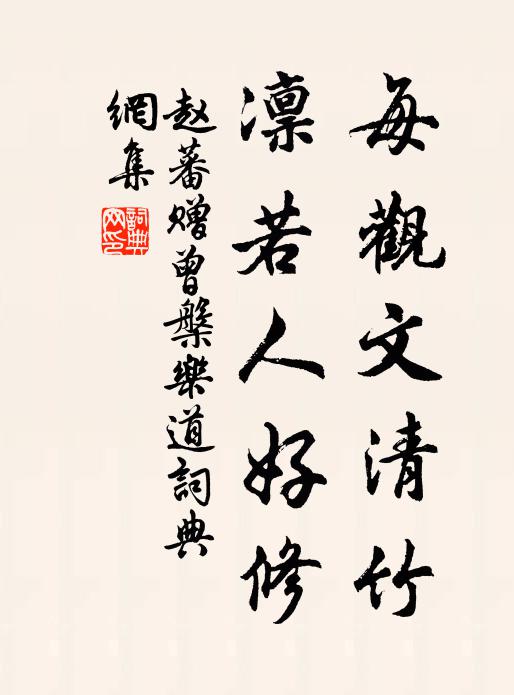 每觀文清竹
凛若人好修
赵蕃赠曾槃樂道詞典
網集
詞典
网印